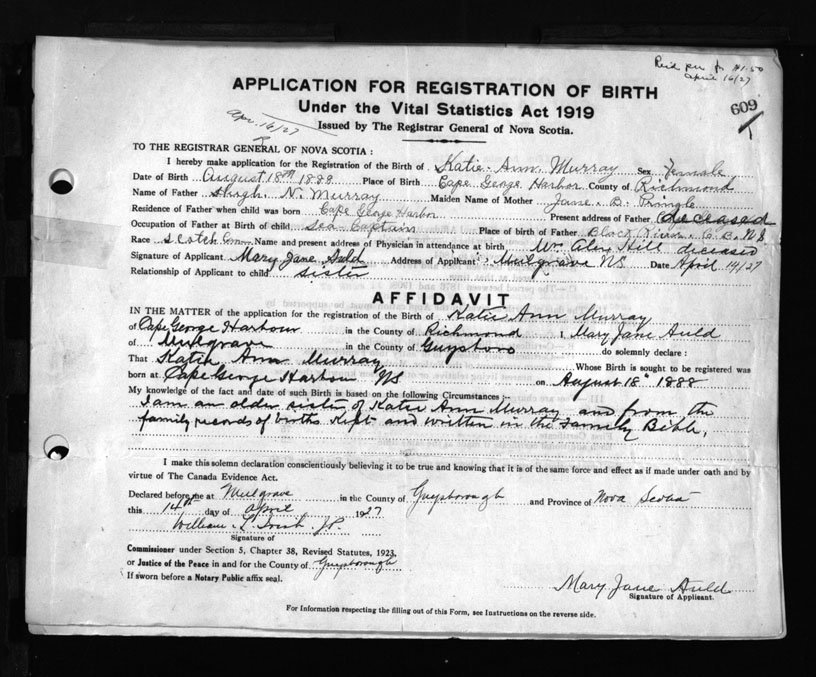 Reid per fr $1.50
April 16/27
APPLICATION FOR REGISTRATION OF BIRTH
609
Under the Vital Statistics Act 1919
Apr. 16/27
Issued by The Registrar General of Nova Scotia.
TO THE REGISTRAR GENERAL OF NOVA SCOTIA:
I hereby make application for the Registration of the Birth of Katie Ann Murray Sex Female
Date of Birth August 18th 1888 Place of Birth Cape George Harbor County of Richmond
Name of Father Hugh N. Murray Maiden Name of Mother Jane B. Pringle
Residence of Father when child was born Cape George Harbor Present address of Father deceased
Occupation of Father at Birth of child Sea Captain Place of birth of Father Black River C.B. NS
Race Scotch Name and present address of Physician in attendance at birth Mrs. Alex Hill diceased
Signature of Applicant Mary Jane Auld Address of Applicant Mulgrave NS Date April 14/27
Relationship of Applicant to child sister
AFFIDAVIT
IN THE MATTER of the application for the registration of the Birth of Katie Ann Murray
of Cape George Harbour in the County of Richmond I, Mary Jane Auld
of Mulgrave in the County of Guysboro do solemnly declare:
That Katie Ann Murray Whose Birth is sought to be registered was
born at Cape George Harbour NS on August 18" 1888
My knowledge of the fact and date of such Birth is based on the following Circumstances:-
I am an older sister of Katie Ann Murray and from the
family records of births kept and written in the Family Bible.
I make this solemn declaration conscientiously believing it to be true and knowing that it is of the same force and effect as if made under oath and by
virtue of The Canada Evidence Act.
Declared before me at Mulgrave in the County of Guysborough and Province of Nova Scotia
this 14th day of April 1927
William L. Irish J.P.
Signature of
Commissioner under Section 5, Chapter 38, Revised Statutes, 1923,
or Justice of the Peace in and for the County of Guysborough
If sworn before a Notary Public affix seal.
Mary Jane Auld
Signature of Applicant.
For Information respecting the filling out of this Form, see Instructions on the reverse side.